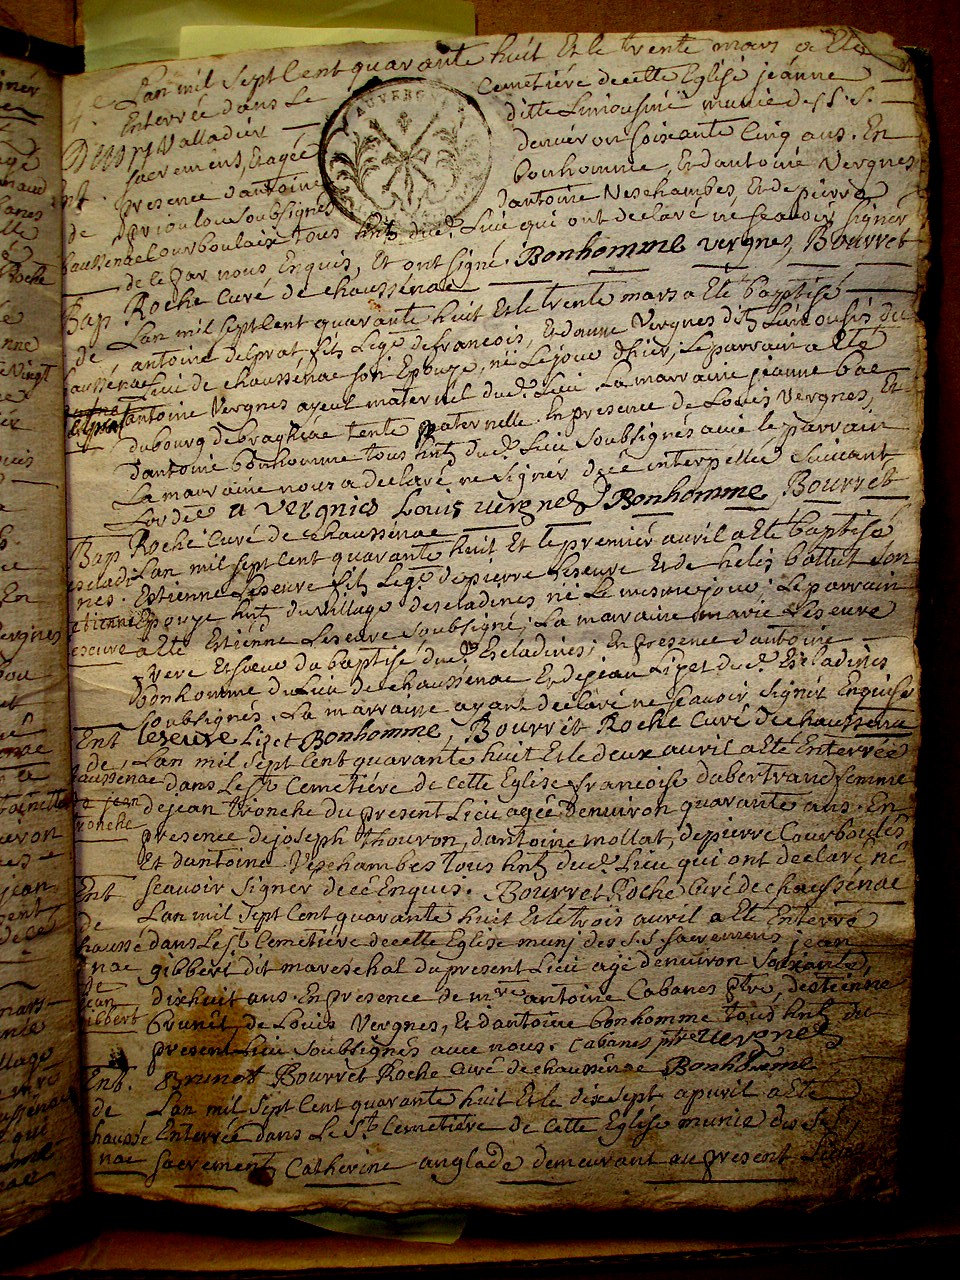 Lan mil sept Cent quarante huit Et le trente mars a Eté
Enterrée dans Le Cemetiére de cette Eglise jeanne
Valladier ditte Limousine munie des S. S.
sacremens, Et agée denviron soixante Cinq ans. En
presence dantoine bonhomme, Et dantoine Vergnes
de prioulou soubsignés dantoine Veschambes, Et de pierre
Courboulaix tous hnts dud. Lieu qui ont declaré ne sçavoir signer
de le par nous Enquis, Et ont signé. Bonhomme vergnes, Bourret
Roche Curé de chaussenac
Bap
de
Lan mil sept Cent quarante huit Et le trente mars a Eté baptisé
antoine delprat fils Lege de francois, Et danne Vergnes dits Limousis du
Lieu de chaussenac son Epouse, né Le jour dhier; Le parrain a Eté
antoine Vergnes ayeul maternel dud. Lieu La marraine jeanne bac
du bourg de braghac tente paternelle. En presence de Louis Vergnes, Et
dantoine bonhomme tous hnts dud. Lieu soubsignés avec le parrain
La marraine nous a declaré ne signer de ce interpellée suivant
Lordce a vergnies Louis vergnes Bonhomme Bourret
Bap Roche Curé de chaussenac
Lan mil sept Cent quarante huit Et le premier avril a Eté baptisé
Estienne Leseure fils Lege de pierre Leseure Et de helis ballut son
Epouse hnts du village descladines né Le mesme jour; Le parrain
a Eté Estienne Leseure soubsigné; La marraine marie Leseure
frere Et sœur du baptisé dud. Escladines; En presence dantoine
bonhomme du Lieu de chaussenac Et de jean Lizet dud. Escladines
soubsignés. La marraine ayant declaré ne sçavoir signer Enquise
leseure Lizet Bonhomme, Bourret Roche Curé de chaussenac
Ent
de
Lan mil sept Cent quarante huit Et le deux avril a Eté Enterrée
chaussenac dans Le St Cemetiére de cette Eglise francoise dabertrand femme
de jean tronche du present Lieu agée denviron quarante ans. En
tronche presence de joseph Thouron, dantoine mollat, de pierre Courboules
Et dantoine Veschambes tous hnts dud. Lieu qui ont declaré ne
Ent sçavoir signer de ce Enquis. Bourret Roche Curé de chaussenac
de Lan mil sept Cent quarante huit Et le trois avril a Eté Enterré
chausse dans Le St Cemetiére de cette Eglise muni des S. S. sacremens jean
nac gibbert dit mareschal du present Lieu agé denviron soixante
de
jean
gibbert
dixhuit ans. En presence de mre antoine Cabanes ptre, destienne
brunet, de Louis Vergnes, Et dantoine bonhomme tous hnts du
present Lieu soubsignés avec nous. Cabanes ptre vergnes
Ent. Brunet Bourret Roche Curé de chaussenac Bonhomme
de Lan mil sept Cent quarante huit Et le dix sept apvril a Eté
chausse Enterrée dans Le St Cemetiére de Cette Eglise munie des
nac sacrements Catherine anglade demeurant au present Lieu